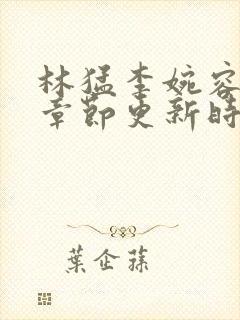 林猛李婉容
章節更新時
葉企蓀